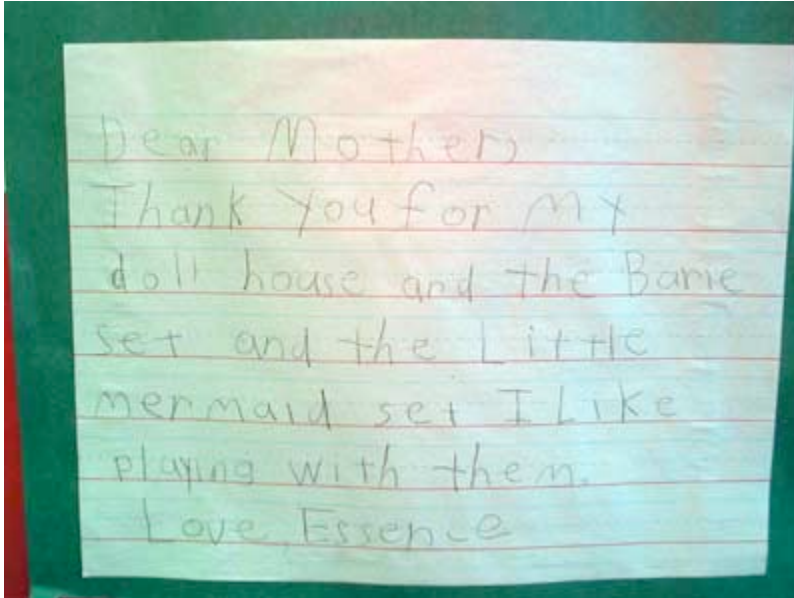 Dear Mother,
Thank you for my
doll house and the Barie
set and the Little
mermaid set I Like
playing with them.
Love, Essence